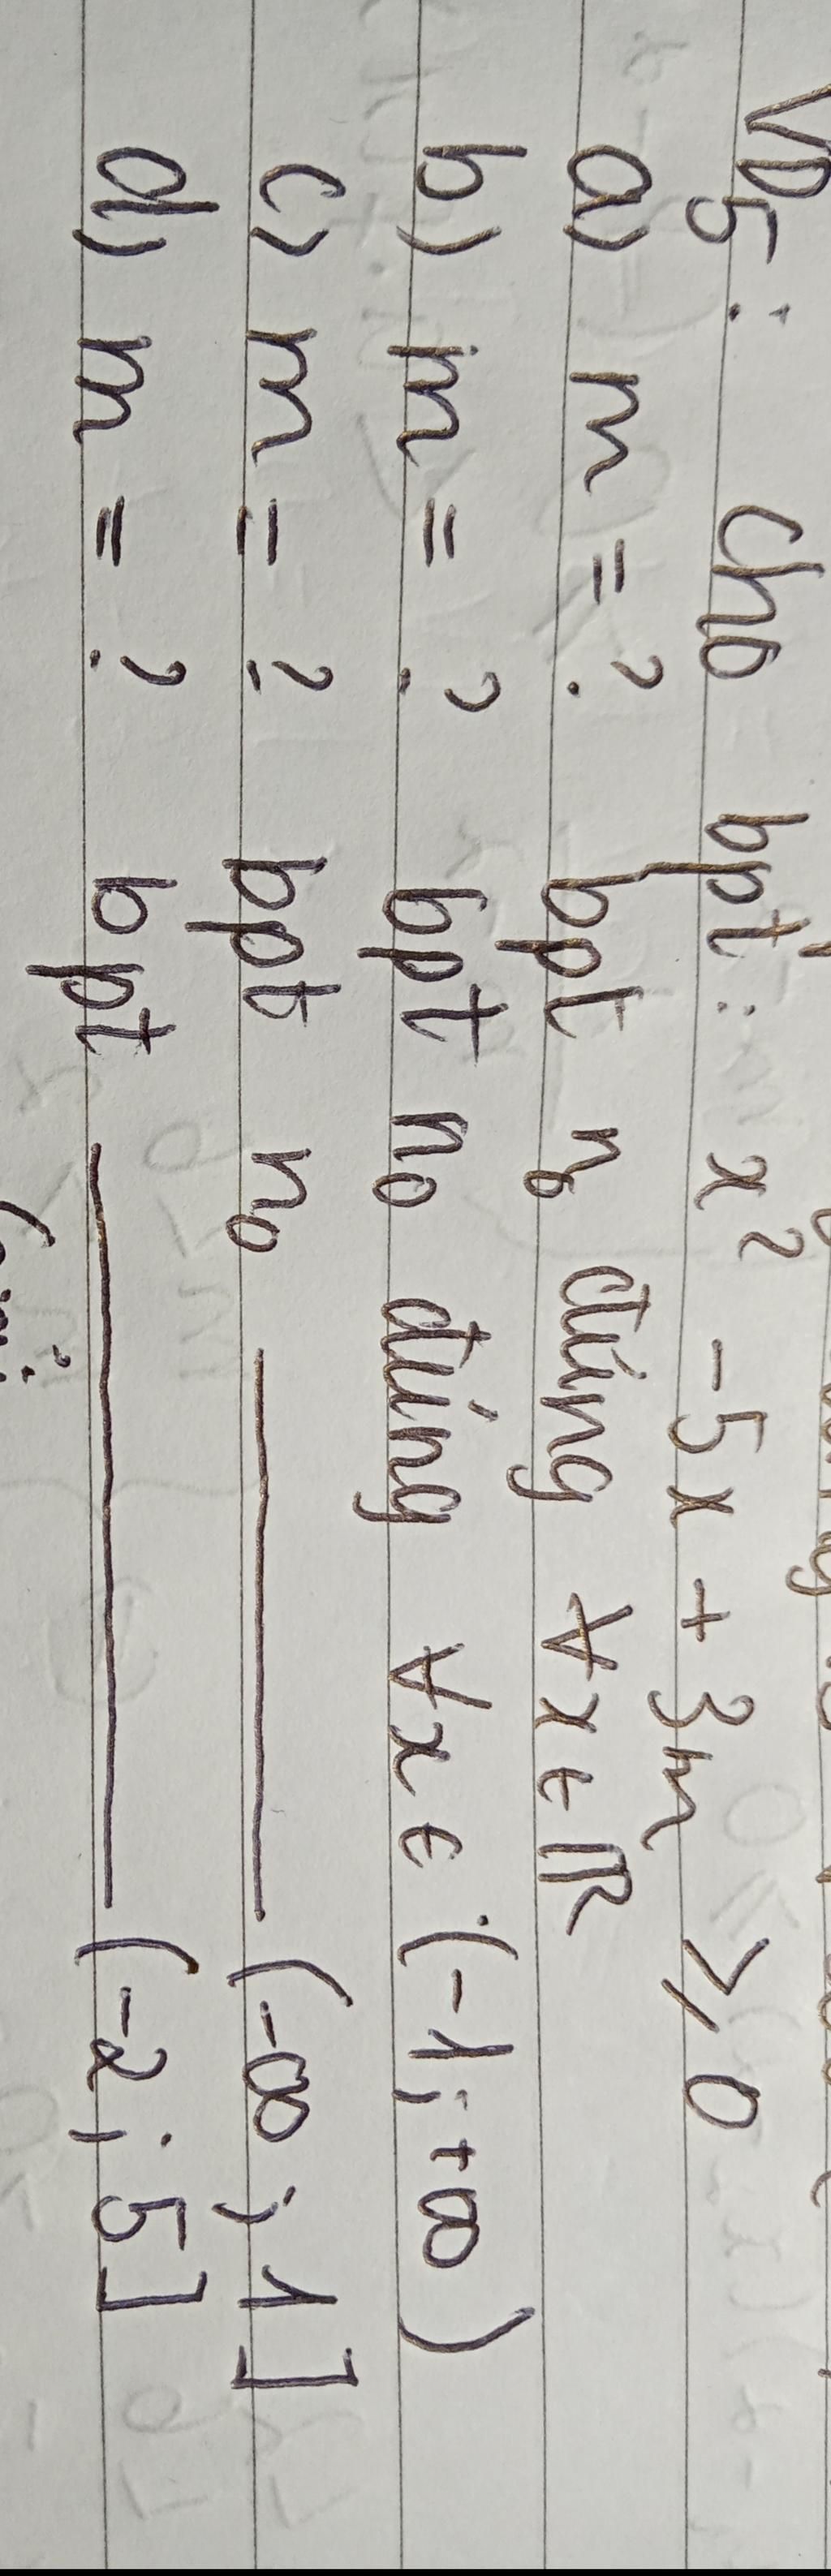 VD5: Cho bpt: x² - 5x + 3m ≥ 0
a) m = ? bpt n₀ đúng ∀x ∈ ℝ
b) m = ? bpt n₀ đúng ∀x ∈ (-1; +∞)
c) m = ? bpt n₀ ———— (-∞; 1]
d) m = ? bpt ———— (-2; 5]